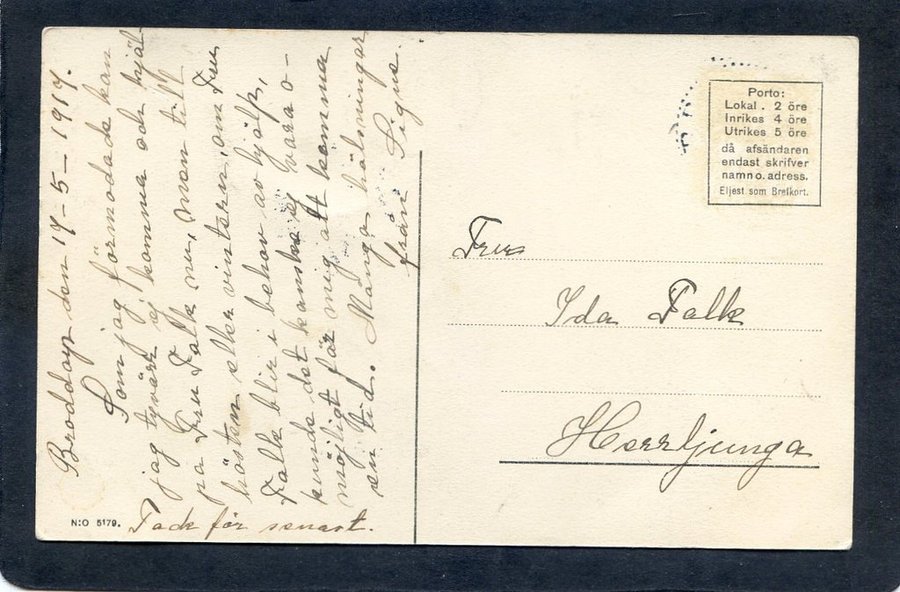 Broddarp den 17-5-1917.
Som jag förmodade kan
jag tyvärr ej komma och hjäl
pa Fru Falk nu, men till
hösten eller vintern, om Fru
Falk blir i behov av hjälp,
kunde det kanske ej vara o-
möjligt för mig att komma
en tid. Många hälsningar
från Signe.
Tack för senast.
N:O 5179.
Porto:
Lokal . 2 öre
Inrikes 4 öre
Utrikes 5 öre
då afsändaren
endast skrifver
namn o. adress.
Eljest som Brefkort.
Fru
Ida Falk
Herrljunga